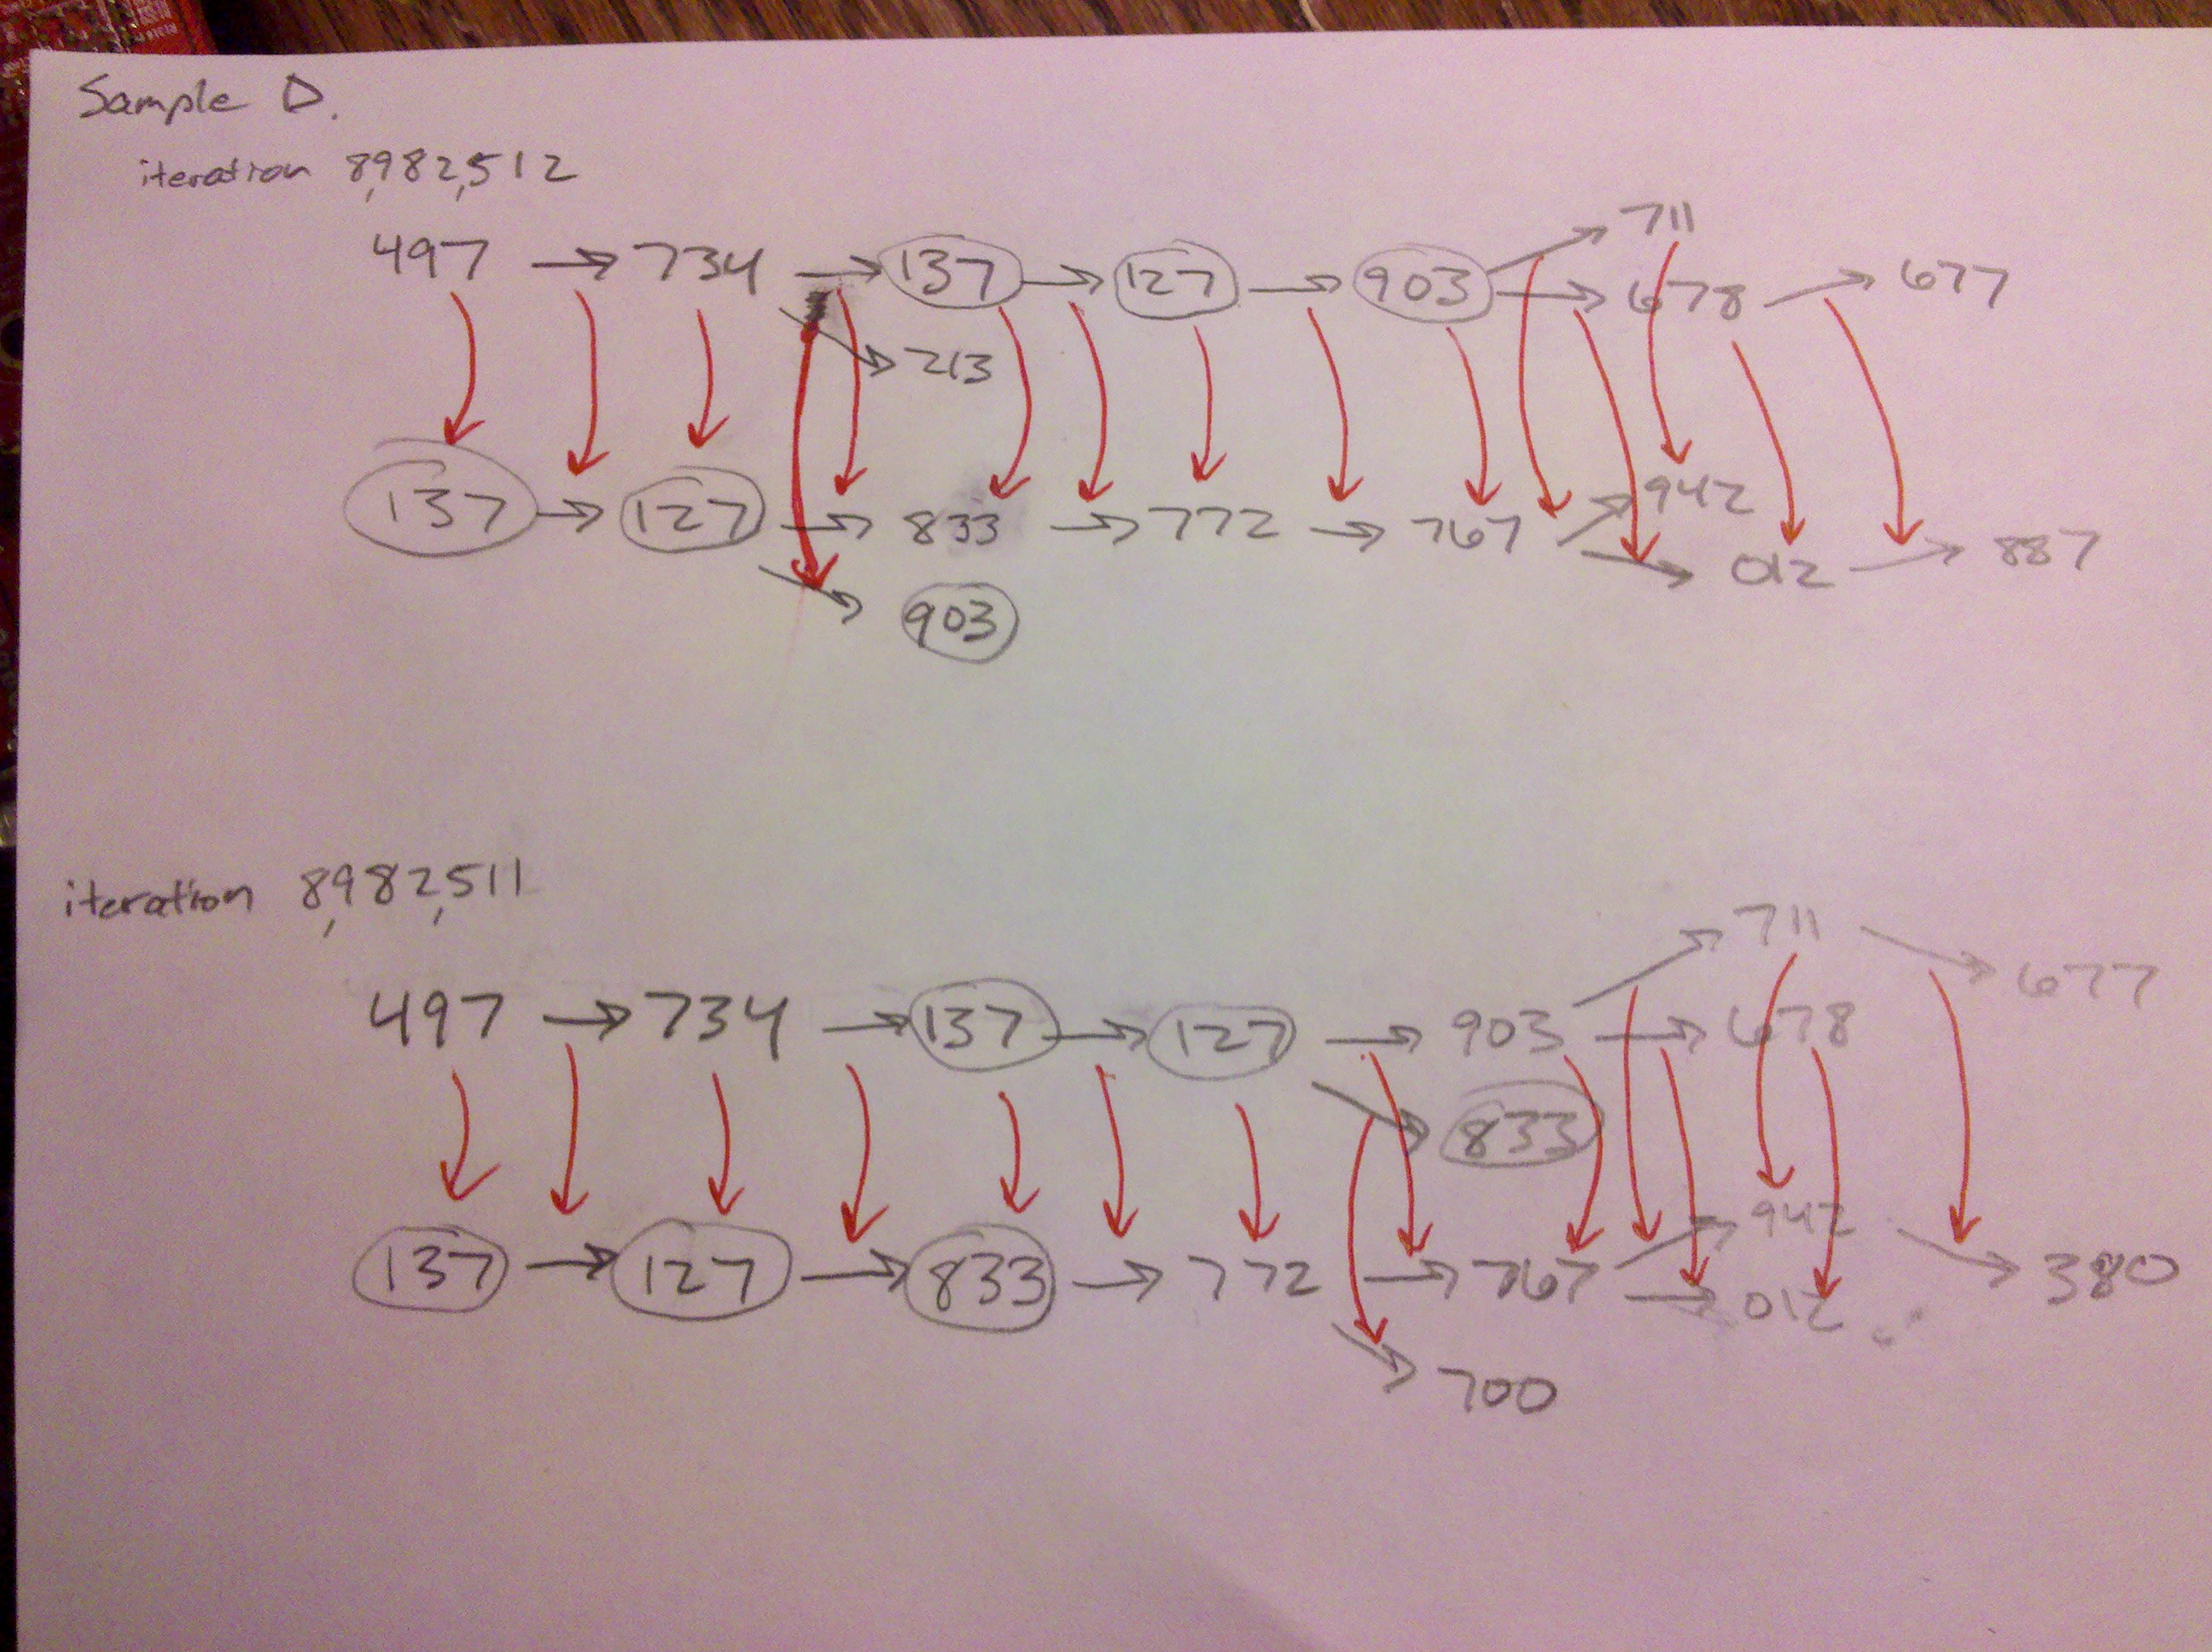 Sample D.
iteration 8,982,512
711
497 → 734 → 137 → 127 → 903 → 678 → 677
213
942
137 → 127 → 833 → 772 → 767 → 012 → 887
903
iteration 8,982,511
711 → 677
497 → 734 → 137 → 127 → 903 → 678
833
942 → 380
137 → 127 → 833 → 772 → 767 → 012
700